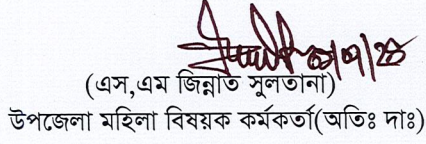 (এস,এম জিন্নাত সুলতানা)
উপজেলা মহিলা বিষয়ক কর্মকর্তা(অতিঃ দাঃ)